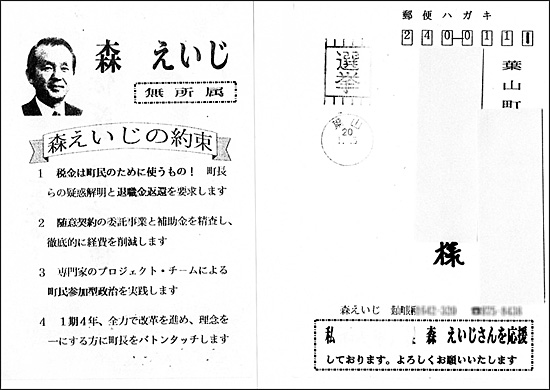 森 えいじ
無所属
森えいじの約束
1 税金は町民のために使うもの! 町長
らの疑惑解明と退職金返還を要求します
2 随意契約の委託事業と補助金を精査し、
徹底的に経費を削減します
3 専門家のプロジェクト・チームによる
町民参加型政治を実践します
4 1期4年、全力で改革を進め、理念を
一にする方に町長をバトンタッチします
郵便ハガキ
240-011
選挙
葉山町
20
様
森えいじ
私 森 えいじさんを応援
しております。よろしくお願いいたします